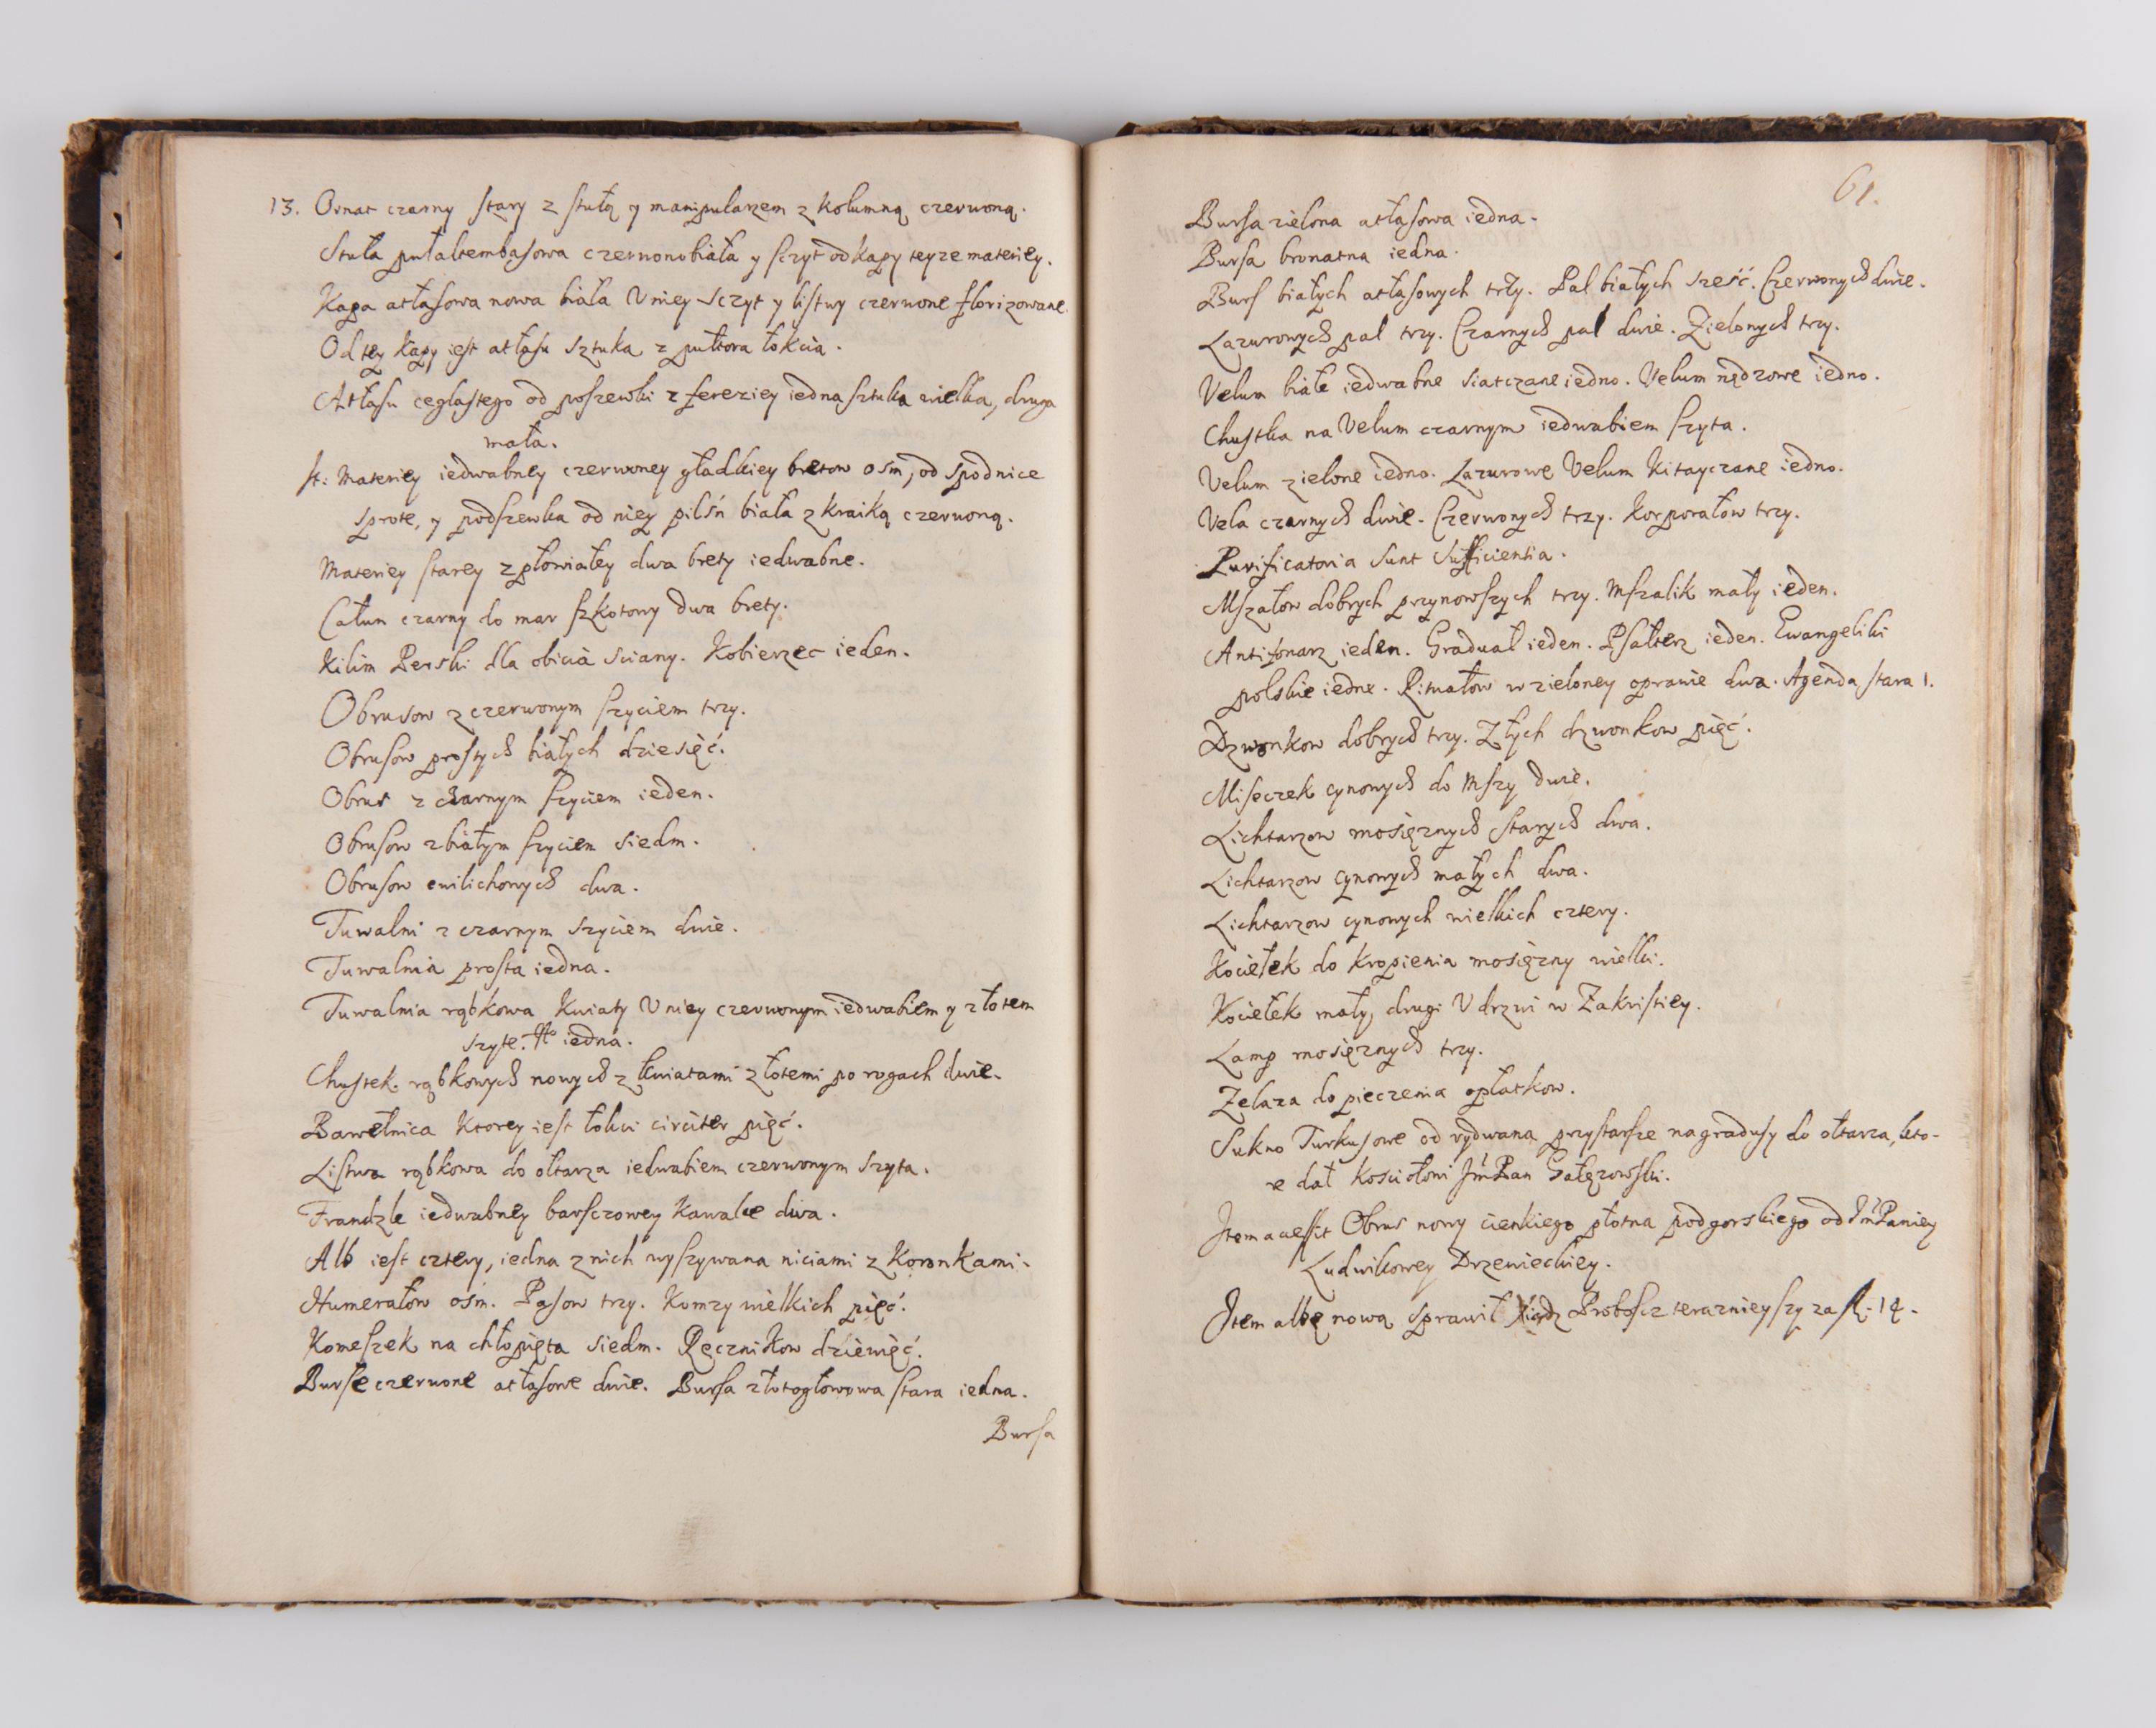 13. Ornat czarny stary z stułą y manipularzem z kolumną czerwoną.
Stuła pułaltembasowa czerwonobiała y szzyt od kapy teyze materiey.
Kapa atłasowa nowa biała U niey sczyt y listwy czerwone florizowane.
Od tey kapy iest atłasu sztuka z pułtora łokcia.
Atłasu ceglastego od poszewki z fereziey iedna sztuka wielka, druga
mała.
It: Materiey iedwabney czerwoney gładkiey bretow osm, od spodnice
sprote, y podszewka od niey pilśn biała z kraiką czerwoną.
Materiey starey zpłowiałey dwa brety iedwabne.
Całun czarny do mar szkotowy dwa brety.
Kilim Perski dla obicia sciany. Kobierzec ieden.
Obrusow z czerwonym szyciem trzy.
Obrusow prostych białych dziesięć.
Obrus z czarnym szyciem ieden.
Obrusow z białym szyciem siedm.
Obrusow cwilichowych dwa.
Tuwalni z czarnym szyciem dwie.
Tuwalnia prosta iedna.
Tuwalnia rąbkowa Kwiaty U niey czerwonym iedwabiem y złotem
szyte. iedna.
Chustek rąbkowych nowych z kwiatami złotemi po rogach dwie.
Bawełnica Ktorey iest łokci circiter pięć.
Listwa rąbkowa do ołtarza iedwabiem czerwonym szyta.
Frandzle iedwabney barszczowey Kawalce dwa.
Alb iest cztery, iedna z nich wyszywana niciami z Koronkami.
Humerałow osm. Pasow trzy. Komzy wielkich pięć.
Komeszek na chłopięta siedm. Ręcznikow dziewięć.
Burse czerwone atłasowe dwie. Bursa złotogłowowa stara iedna.
Bursa
61.
Bursa zielona atłasowa iedna.
Bursa brunatna iedna.
Burs białych atłasowych trzy. Pal białych sześć. Czerwonych dwie.
Lazurowych pal trzy. Czarnych pal dwie. Zielonych trzy.
Velum białe iedwabne siatczane iedno. Velum nędzowe iedno.
Chustka na Velum czarnym iedwabiem szyta.
Velum zielone iedno. Lazurowe Velum Kitayczane iedno.
Vela czarnych dwie. Czerwonych trzy. Korporałow trzy.
Purificatoria sunt sufficientia.
Mszałow dobrych przynowszych trzy. Mszalik mały ieden.
Antifonarz ieden. Graduał ieden. Psałterz ieden. Ewangeliki
polskie iedne. Rituałow w zieloney oprawie dwa. Agenda stara 1.
Dzwonkow dobrych trzy. Złych dzwonkow pięć.
Miseczek cynowych do Mszy dwie.
Lichtarzow mosięznych starych dwa.
Lichtarzow cynowych małych dwa.
Lichtarzow cynowych wielkich cztery.
Kociełek do Kropienia mosięzny wielki.
Kociełek mały, drugi U drzwi w Zakristiey.
Lamp mosięznych trzy.
Zelaza do pieczenia opłatkow.
Sukno Turkusowe od rydwana przystarsze na gradusy do ołtarza, kto-
re dał Kosciołowi Jm Pan Gałęzowski.
Item acessit Obrus nowy cienkiego płotna podgorskiego od Jm Paniey
Ludwikowey Drzewieckiey.
Item albę nową sprawił Xiądz Proboszcz terazniejszy za fl. 14.